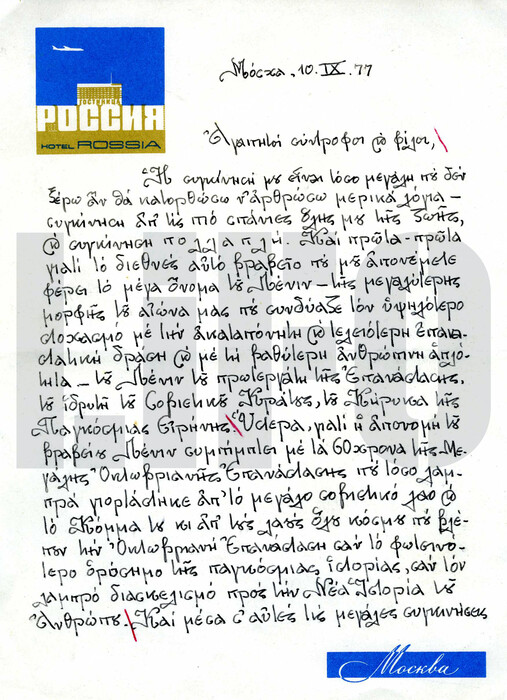 ГОСТИНИЦА
РОССИЯ
HOTEL ROSSIA
Μόσχα, 10.IX.77
Ἀγαπητοί σύντροφοι ϗ φίλοι,
Ἡ συγκίνησή μου εἶναι τόσο μεγάλη πού δέν
ξέρω ἄν θά κατορθώσω ν' ἀρθρώσω μερικά λόγια –
συγκίνηση ἀπ' τίς πιό σπάνιες ὅλης μου τῆς ζωῆς,
ϗ συγκίνηση πολλαπλή. Καί πρῶτα-πρῶτα
γιατί τό διεθνές αὐτό βραβεῖο πού μοῦ ἀπονέμετε
φέρει τό μέγα ὄνομα τοῦ Λένιν – τῆς μεγαλύτερης
μορφῆς τοῦ αἰώνα μας πού συνδύαζε τόν ὑψηλότερο
στοχασμό μέ τήν ἀκαταπόνητη ϗ τελειότερη ἐπανα-
στατική δράση ϗ μέ τή βαθύτερη ἀνθρώπινη ἁπλό-
τητα – τοῦ Λένιν τοῦ πρωτεργάτη τῆς Ἐπανάστασης,
τοῦ ἱδρυτῆ τοῦ Σοβιετικοῦ Κράτους, τοῦ Κήρυκα τῆς
Παγκόσμιας Εἰρήνης. Ὕστερα, γιατί ἡ ἀπονομή τοῦ
βραβείου Λένιν συμπίμπτει μέ τά 60χρονα τῆς Με-
γάλης Ὀκτωβριανῆς Ἐπανάστασης πού τόσο λαμ-
πρά γιορτάστηκε ἀπ' τό μεγάλο σοβιετικό λαό ϗ
τό Κόμμα του κι ἀπ' τούς λαούς ὅλου κόσμου πού βλέ-
πουν τήν Ὀκτωβριανή Ἐπανάσταση σάν τό φωτεινό-
τερο ὁρόσημο τῆς παγκόσμιας ἱστορίας, σάν τόν
λαμπρό διασκελισμό πρός τήν Νέα Ἱστορία τοῦ
Ἀνθρώπου. Καί μέσα σ' αὐτές τίς μεγάλες συγκινήσεις
Москва